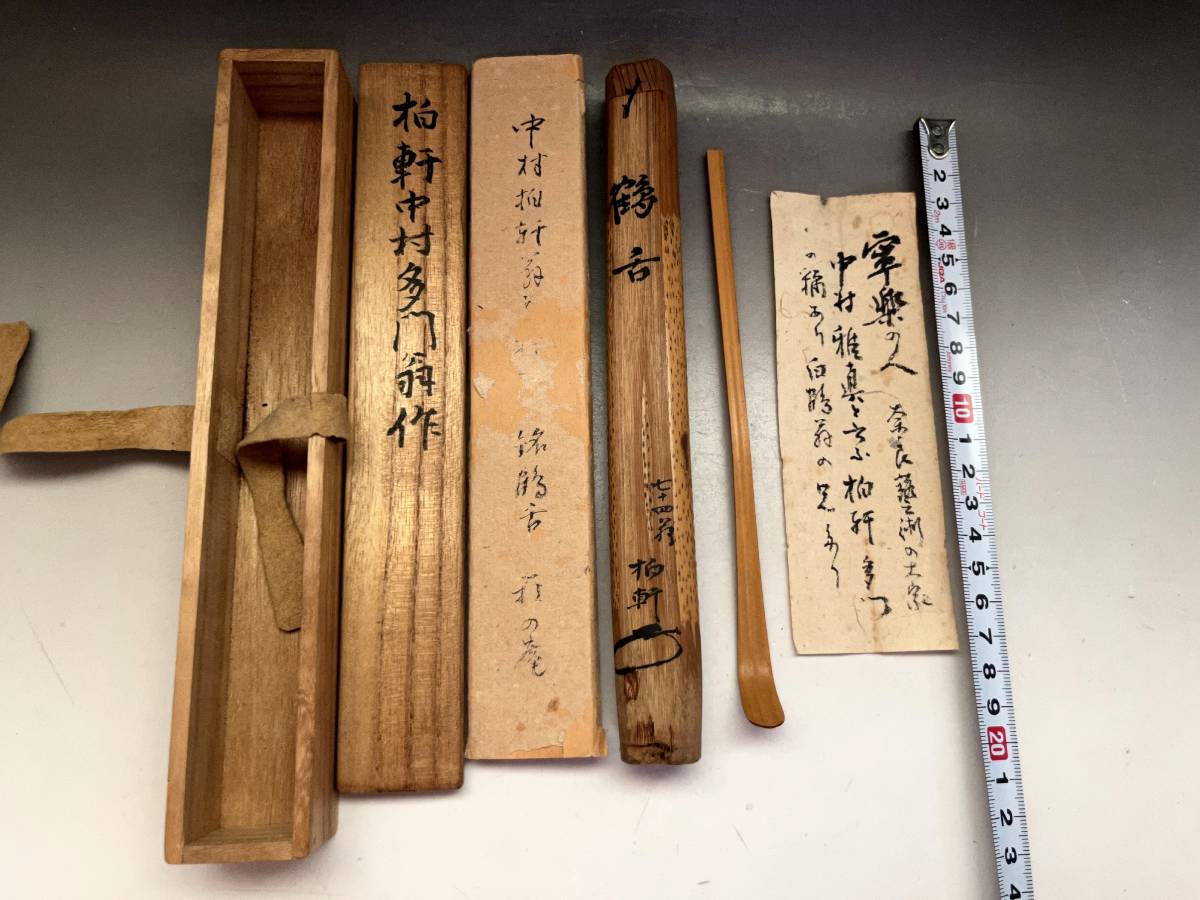 柏軒中村多門翁作
中村柏軒翁
銘鶴舌
庵
〆
鶴舌
七十四翁
柏軒
寧楽の人
奈良
の大家
中村雅真と云ふ柏軒多門
の称あり白鶴翁の兄なり
2 3 4 5 6 7 8 9 10 1 2 3 4 5 6 7 8 9 20 1 2 3 4
2m
JQA